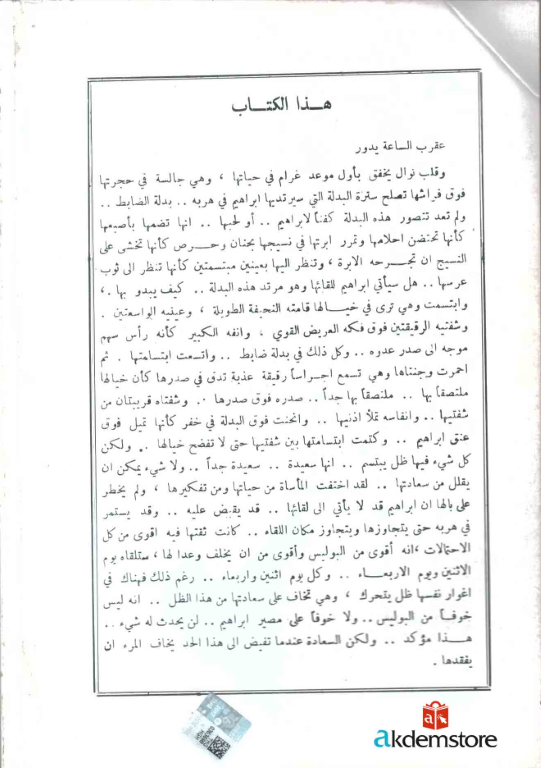 هـذا الكتـاب
عقرب الساعة يدور
وقلب نوال يخفق بأول موعد غرام في حياتها ، وهي جالسة في حجرتها
فوق فراشها تصلح سترة البدلة التي سيرتديها ابراهيم في هربه .. بدلة الضابط ..
ولم تعد تتصور هذه البدلة كفناً لابراهيم .. أو لحبها .. انها تضمها بأصبعها
كأنها تحتضن احلامها وتمرر ابرتها في نسيجها بحنان وحـرص كأنها تخشى على
النسيج ان تجـرحه الابرة ، وتنظر اليها بعينين مبتسمتين كأنها تنظر الى ثوب
عرسها .. هل سيأتي ابراهيم للقائها وهو مرتد هذه البدلة .. كيف يبدو بها .
وابتسمت وهي ترى في خيـالها قامته النحيفة الطويلة ، وعينيه الواسعتين .
وشفتيه الرقيقتين فوق فكه العريض القوي ، وانفه الكبير كأنه رأس سهم
موجه الى صدر عدوه .. وكل ذلك في بدلة ضابط .. واتسعت ابتسامتها . ثم
احمرت وجنتاها وهي تسمع اجراساً رقيقة عذبة تدق في صدرها كأن خيالها
ملتصقاً بها .. ملتصقاً بها جداً .. صدره فوق صدرها .. وشفتاه قريبتان من
شفتيها .. وانفاسه تملأ اذنيها .. وانحنت فوق البدلة في خفر كأنها تميل فوق
عنق ابراهيم .. وكتمت ابتسامتها بين شفتيها حتى لا تفضح خيالها .. ولكن
كل شيء فيها ظل يبتسم .. انها سعيدة .. سعيدة جداً .. ولا شيء يمكن ان
يقلل من سعادتها .. لقد اختفت المأساة من حياتها ومن تفكيرها ، ولم يخطر
على بالها ان ابراهيم قد لا يأتي الى لقائها .. قد يقبض عليه .. وقد يستمر
في هربه حتى يتجاوزها ويتجاوز مكان اللقاء .. كانت ثقتها فيه اقوى من كل
الاحتمالات ، انه أقوى من البوليس وأقوى من ان يخلف وعدا لها ، ستلقاه يوم
الاثنين ويوم الاربعـاء .. وكل يوم اثنين واربعاء .. رغم ذلك فهناك في
اغوار نفسها ظل يتحرك ، وهي تخاف على سعادتها من هذا الظل .. انه ليس
خوفاً من البوليس .. ولا خوفاً على مصير ابراهيم .. لن يحدث له شيء ..
هـذا مؤكد .. ولكن السعادة عندما تفيض الى هذا الحد يخاف المرء ان
يفقدها .
akdemstore